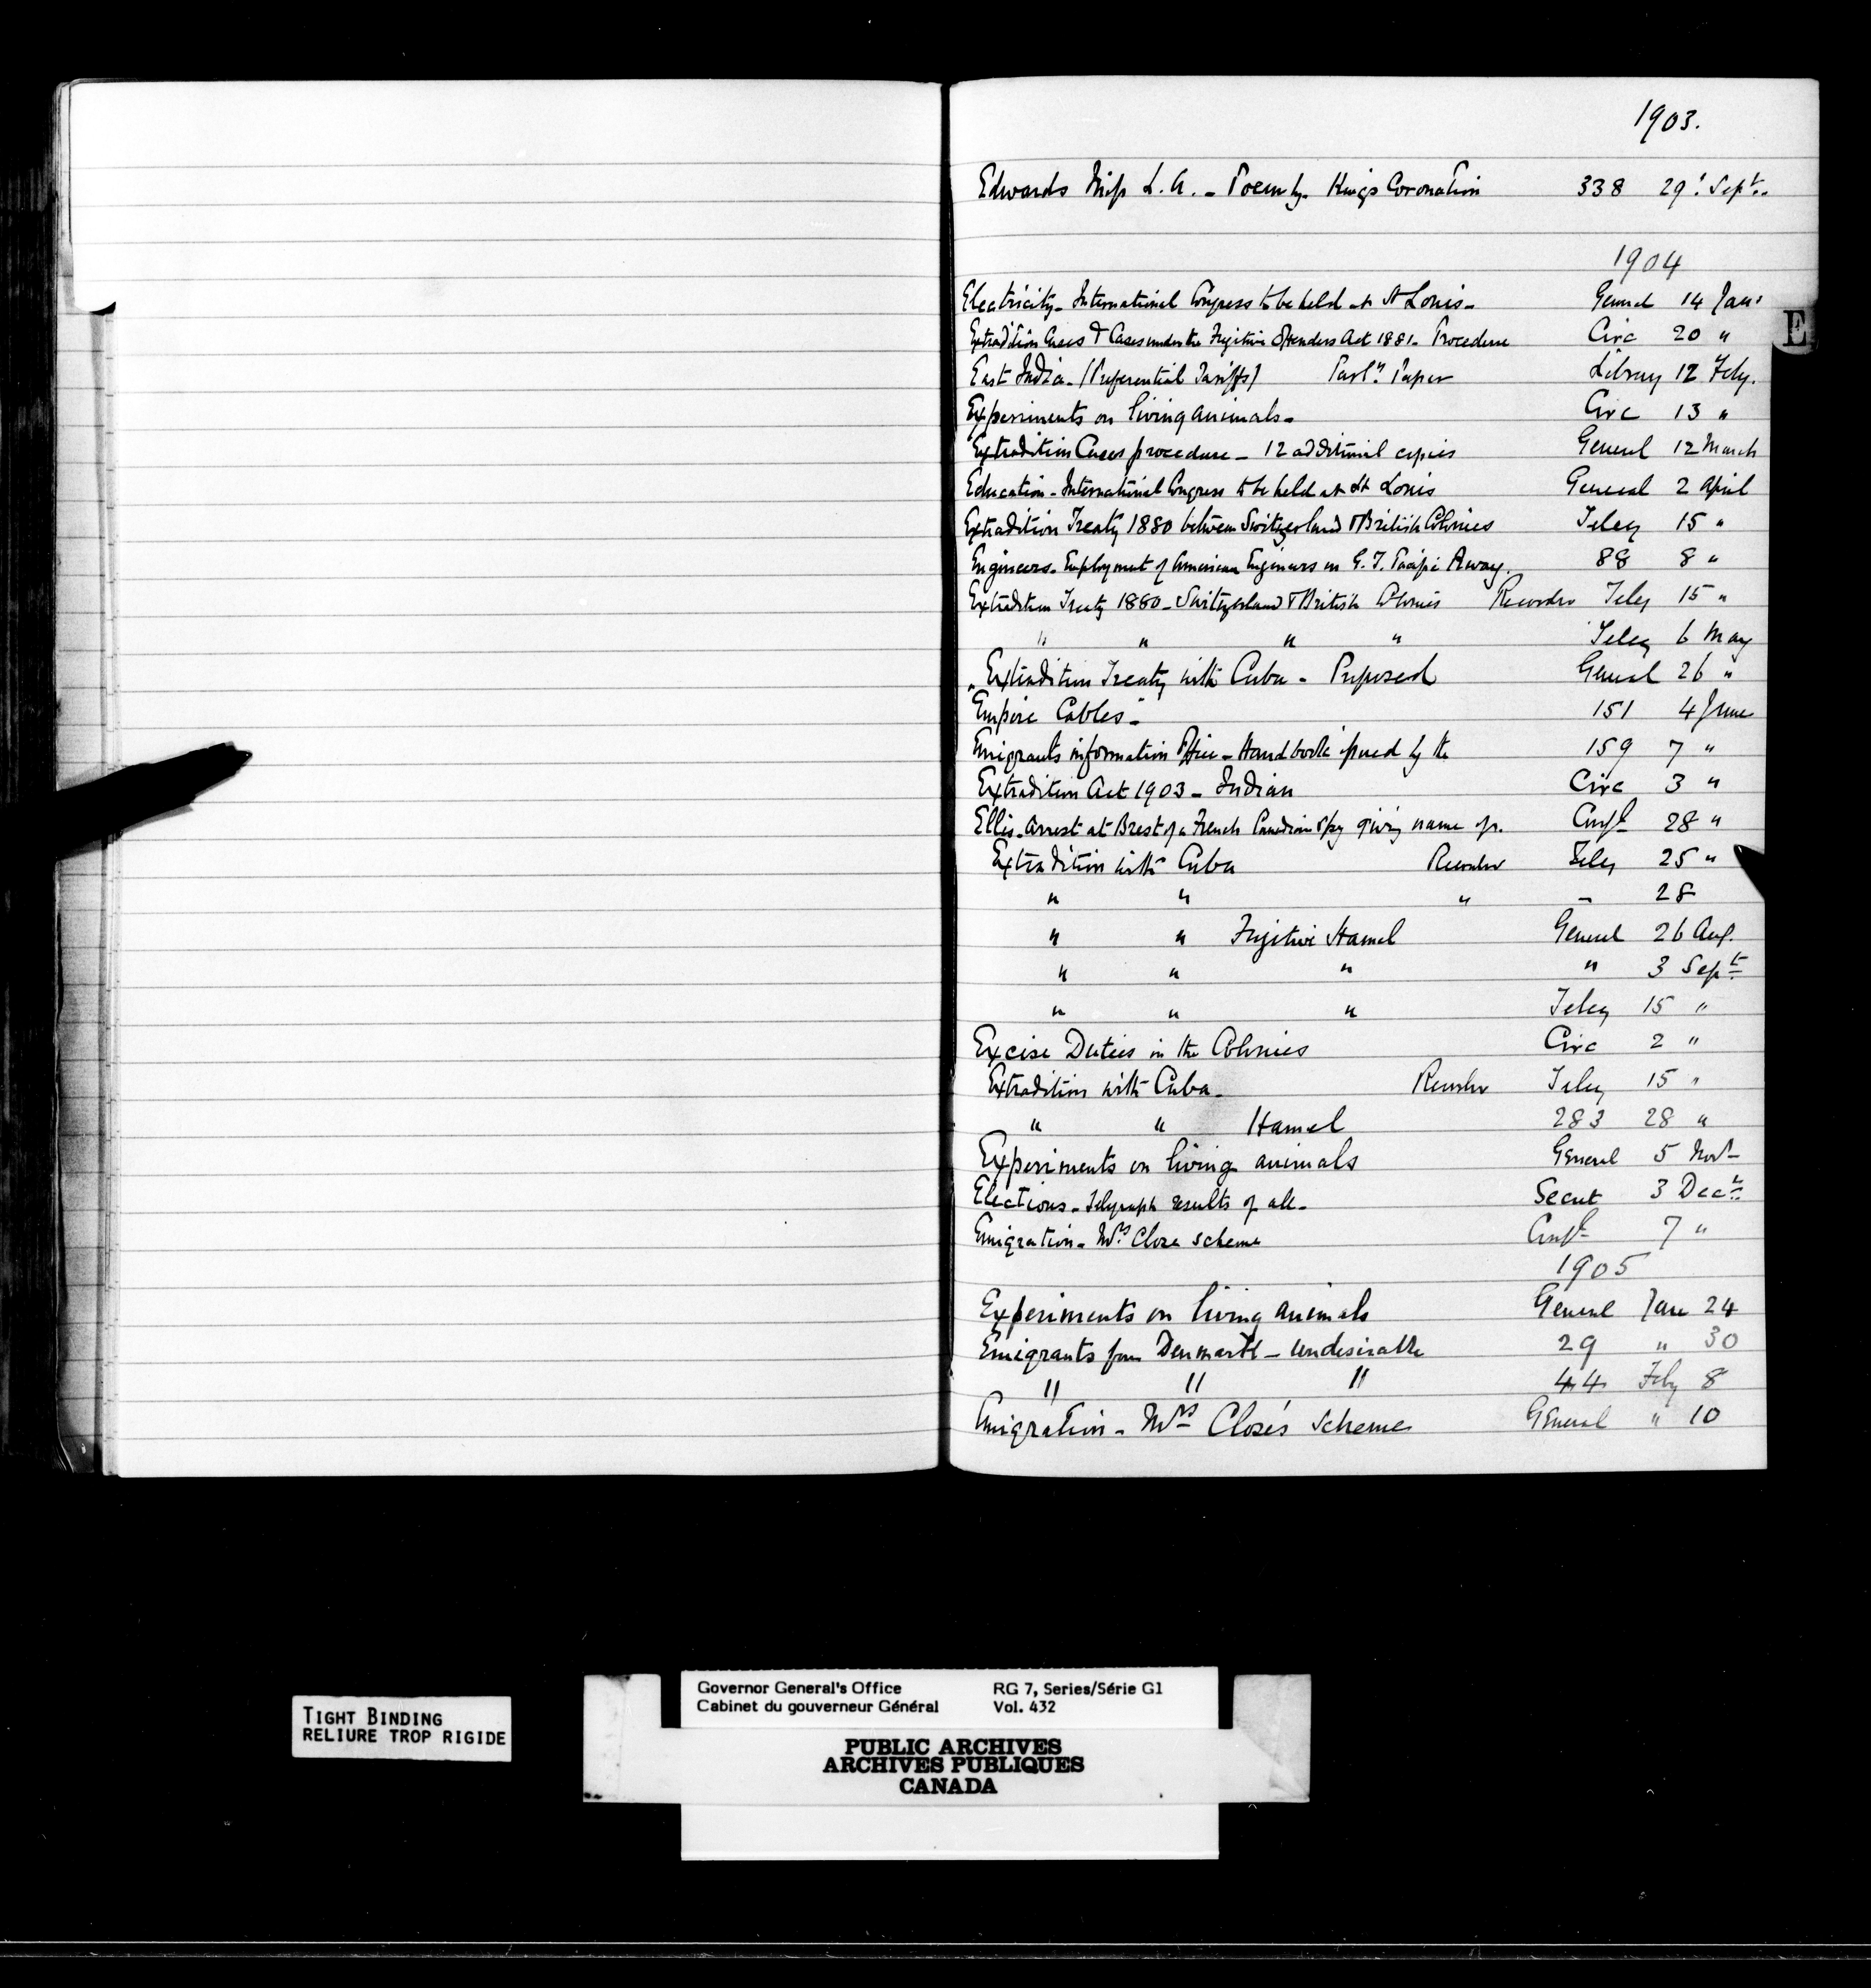 1903.
Edwards Miss L. A. - Poem by. Kings Coronation 338 29 Sept.
1904
Electricity - International Congress to be held at St Louis - General 14 Jan
Extradition Cases & Cases under the Fugitive Offenders Act 1881 - Procedure Circ 20 "
E
East India - (Preferential Tariffs) Parly. Paper Library 12 Feby.
Experiments on living animals - Circ 13 "
Extradition Cases procedure - 12 additional copies General 12 March
Education - International Congress to be held at St Louis General 2 April
Extradition Treaty 1880 between Switzerland & British Colonies Teleg 15 "
Engineers - Employment of American Engineers on G. T. Pacific Rway. 88 8 "
Extradition Treaty 1880 - Switzerland & British Colonies Teleg 15 "
" " " " Teleg 6 May
" Extradition Treaty with Cuba - Proposed General 26 "
Empire Cables - 151 4 June
Emigrants information Office - Handbook issued by the 159 7 "
Extradition Act 1903 - Indian Circ 3 "
Ellis - Arrest at Brest of a French Canadian spy giving name of. Conf. 28 "
Extradition with Cuba Teleg 25 "
" " " - 28
" " Fugitive Hamel General 26 Aug.
" " " " 3 Sept
" " " Teleg 15 "
Excise Duties in the Colonies Circ 2 "
Extradition with Cuba - Teleg 15 "
" " Hamel 283 28 "
Experiments on living animals General 5 Nov
Elections - Telegraph results of all - Secret 3 Decr
Emigration - Mrs Close scheme Conf 7 "
1905
Experiments on living animals General Jan 24
Emigrants from Denmark - undesirable 29 " 30
" " " 44 Feby 8
Emigration - Mrs Close's Scheme General " 10
TIGHT BINDING
RELIURE TROP RIGIDE
Governor General's Office RG 7, Series/Série G1
Cabinet du gouverneur Général Vol. 432
PUBLIC ARCHIVES
ARCHIVES PUBLIQUES
CANADA